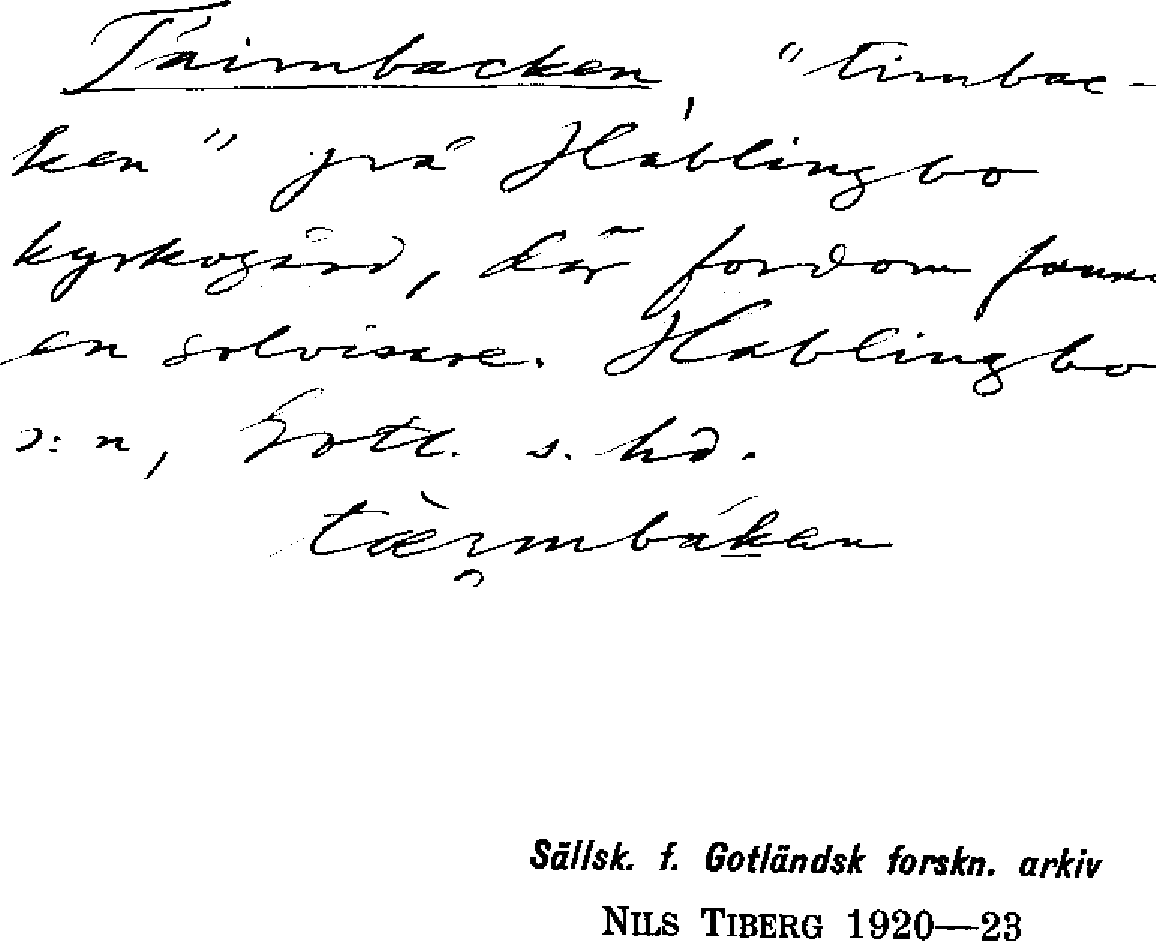 Täimbacken, "timbac-
ken" på Hablingbo
kyrkogård, där fordom fanns
en solvisare. Hablingbo
s:n, Gotl. s. hd.
Sällsk. f. Gotländsk forskn. arkiv
NILS TIBERG 1920—23